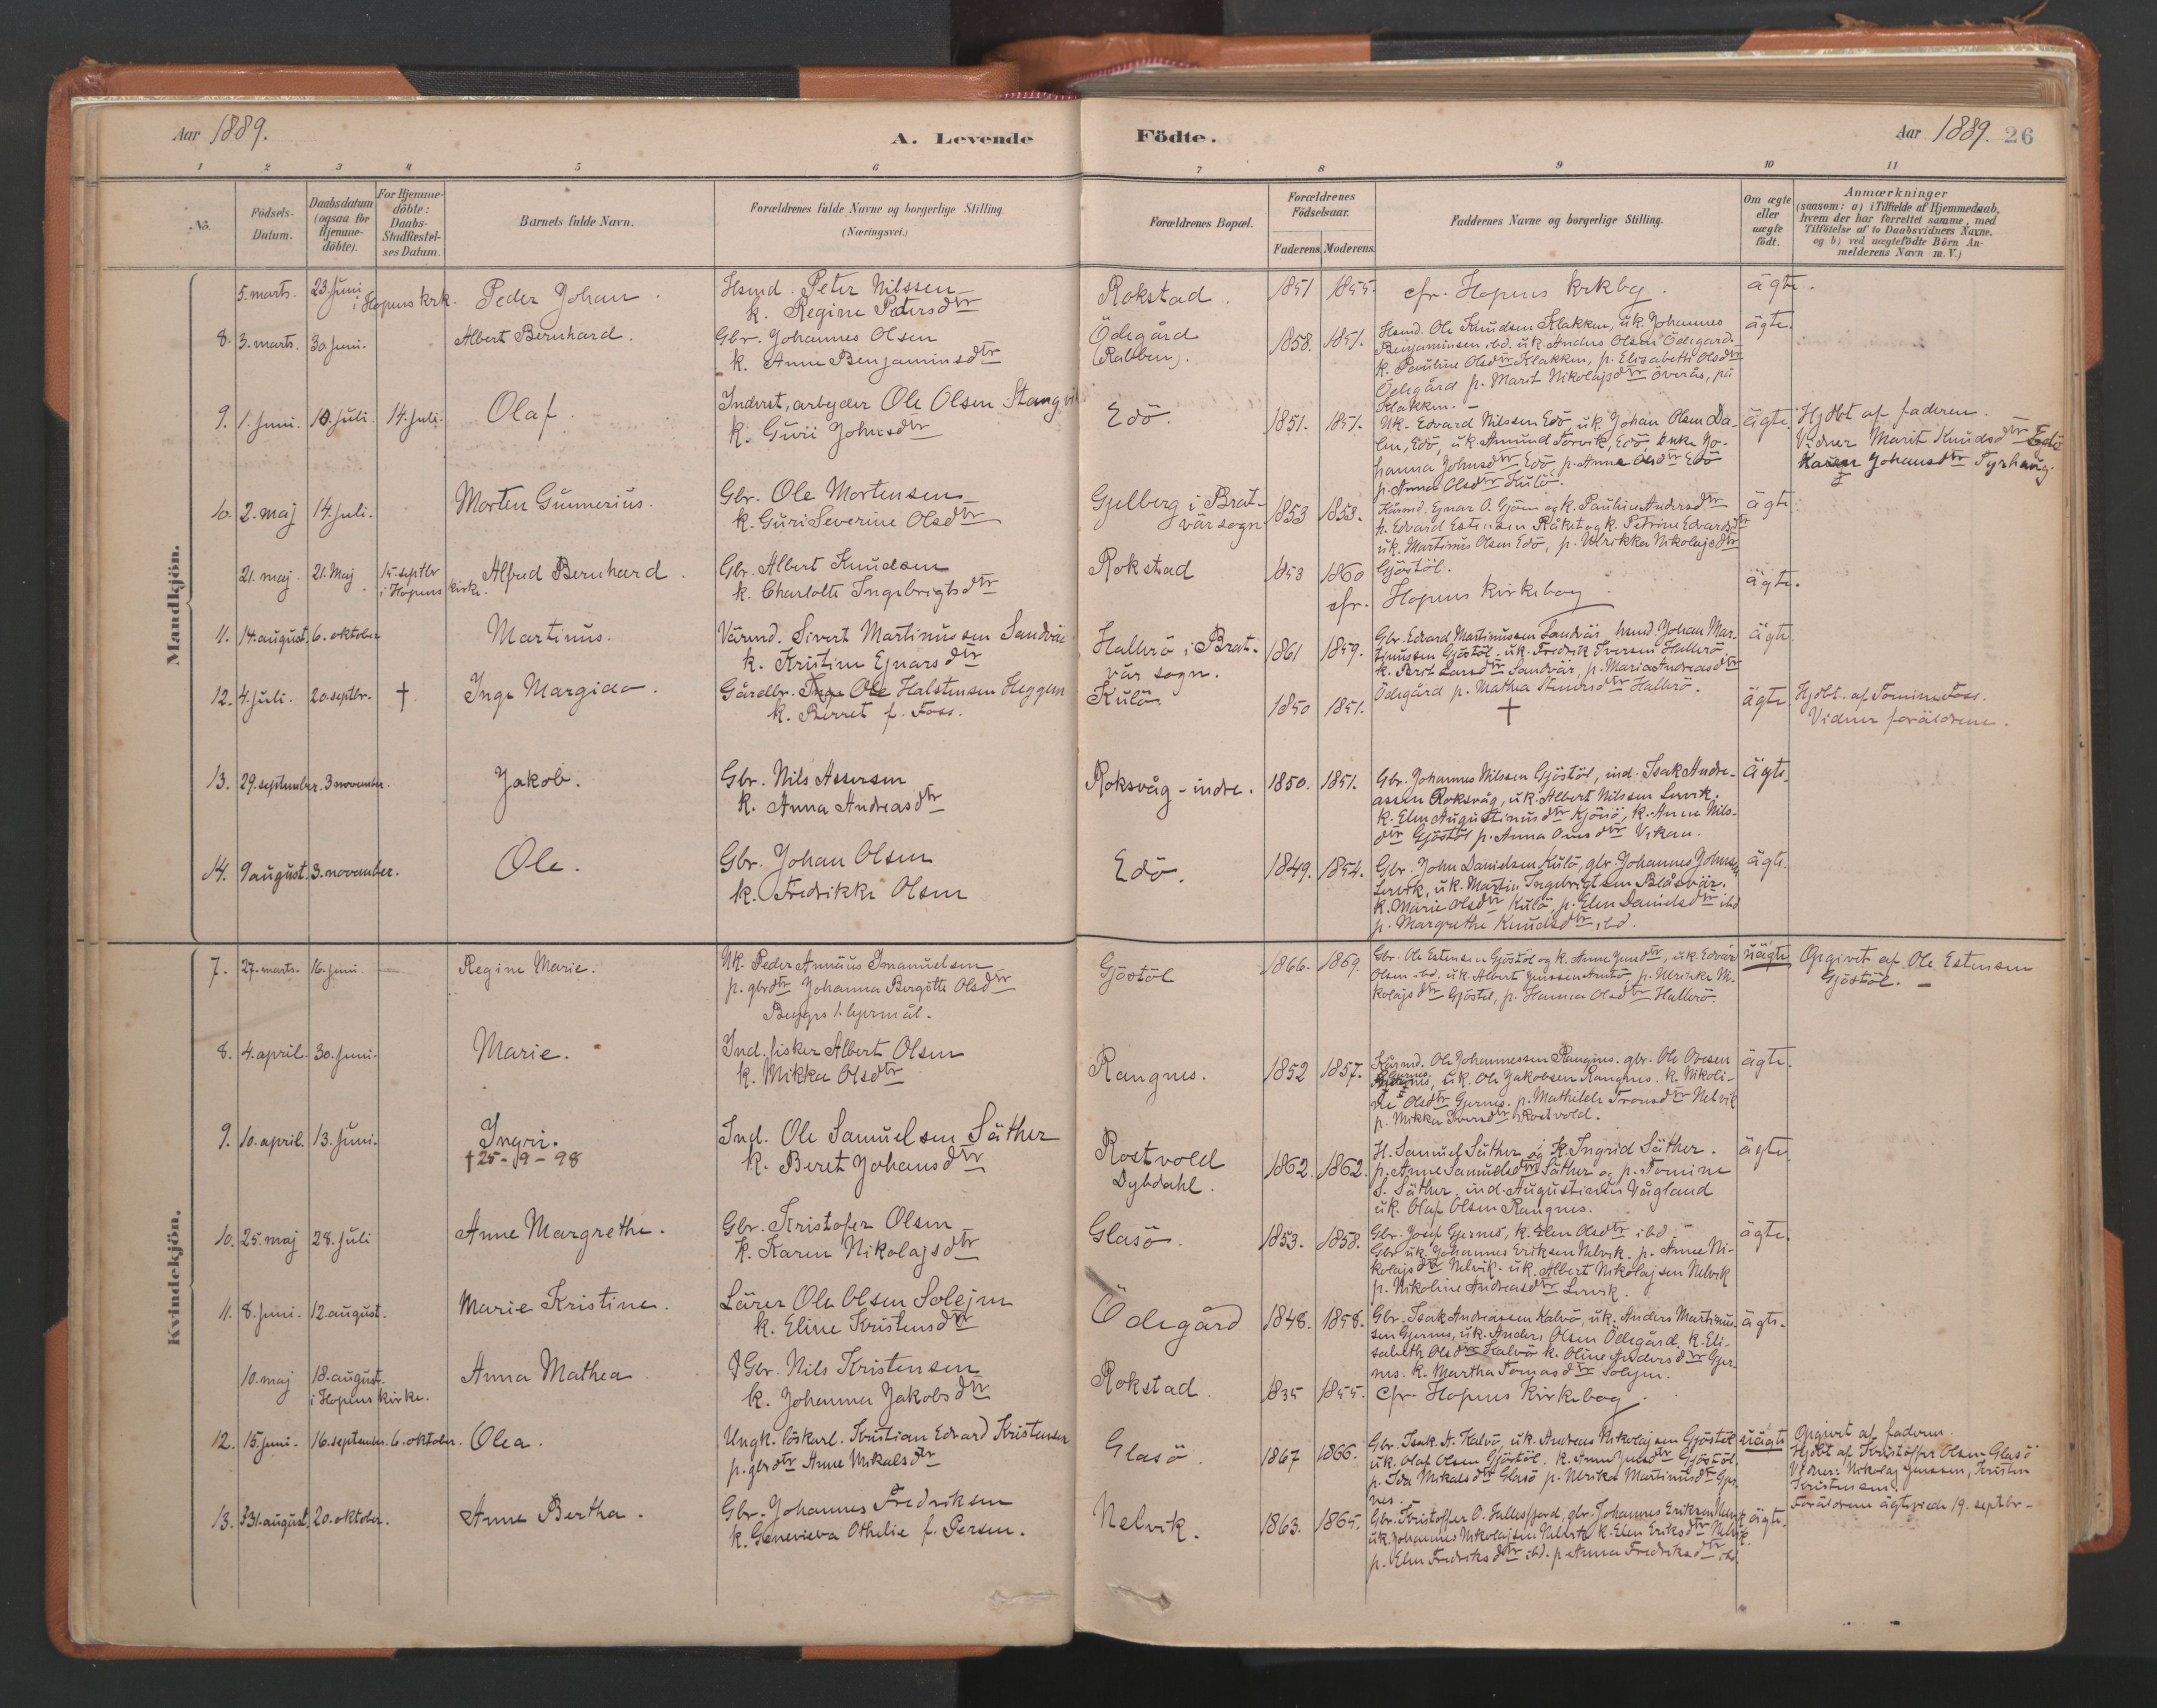 Aar 1889.
A. Levende
Födte.
Aar 1889. 26
1 2 3 4 5 6 7 8 9 10 11
No.
Födsels-Datum.
Daabsdatum (ogsaa for Hjemme-döbte).
For Hjemme-döbte: Daabs-Stadfæstel-ses Datum.
Barnets fulde Navn.
Forældrenes fulde Navne og borgerlige Stilling.
(Næringsvei.)
Forældrenes Bopæl.
Forældrenes Födselsaar.
Faderens. Moderens.
Faddernes Navne og borgerlige Stilling.
Om ægte eller uægte födt.
Anmærkninger
(saasom: a) i Tilfælde af Hjemmedaab, hvem der har forrettet samme, med Tilföielse af to Daabsvidners Navne, og b) ved uægtefödte Börn An-melderens Navn m. V.)
Mandkjön.
5. marts. 23. juni i Hopens krk. Peder Johan.
Hsmd. Peter Nilssen
k. Regine Petersdtr
Rokstad. 1851 1855. cfr. Hopens krkbg. ägte.
8. 3. marts. 30. juni. Albert Bernhard.
Gbr. Johannes Olsen
k. Anne Benjaminsdtr
Ödegård
(Rabben).
1858. 1851.
Hsmd. Ole Knudsen Klakken, uk. Johannes
Benjaminsen ibd. uk. Anders Olsen Ödegård.
k. Pauline Olsdtr Klakken, p. Elisabeth Olsdtr
Ödegård p. Marit Nikolajsdtr Överås, på
Klakken. -
ägte.
9. 1. juni. 10. juli. 14. juli. Olaf.
Inderst, arbejder Ole Olsen Stangvik
k. Guri Johnsdtr
Edö. 1851. 1851.
Uk. Edvard Nilssen Edö, uk. Johan Olsen Da-
len, Edö, uk. Amund Torvik, Edö, enke Jo-
hanna Johnsdtr Edö p. Anne Olsdtr Edö
p. Anne Olsdtr Kulö.
ägte. Hjdbt af faderen.
Vidner Marit Knudsdtr Edö
Karen Johansdtr Tyrhaug.
10. 2. maj 14. juli. Morten Gunnerius.
Gbr. Ole Mortensen
k. Guri Severine Olsdtr
Gjelberg i Brat-
vär sogn
1853 1853.
Kårmd. Ejnar O. Gjöen og k. Pauline Andersdtr
h. Edvard Estensen Råket og k. Petrine Edvardsdtr
uk. Martinus Olsen Edö, p. Ulrikka Nikolajsdtr
Gjöstöl.
ägte.
21. maj. 21. Maj. 15. septbr i Hopens kirke. Alfred Bernhard.
Gbr. Albert Knudsen
k. Charlotte Ingebrigtsdtr
Rokstad 1853 1860 cfr. Hopens kirkebog. ägte.
11. 14. august 6. oktober Martinus.
Värmd. Sivert Martinussen Sandvär
k. Kristine Ejnarsdtr
Hallerö i Brat-
vär sogn.
1861 1859.
Gbr. Edvard Martinussen Sandvär, hsmd. Johan Mar-
tinussen Gjöstöl. uk. Fredrik Iversen Hallerö.
k. Berit Larsdtr Sandvär, p. Maria Andreasdtr
Ödegård p. Mathea Steinersdtr Hallerö.
ägte.
12. 4. juli. 20. septbr. † Inga Margido.
Gårdbr. Ole Halstensen Heggem
k. Berret f. Foss.
Kulö. 1850 1851. † ägte.
Hjdbt. af Tomine Foss.
Vidner foräldrene.
13. 29. september. 3 november. Jakob.
Gbr. Nils Assersen
k. Anna Andreasdtr
Roksvåg - indre. 1850. 1851.
Gbr. Johannes Nilssen Gjöstöl, ind. Isak Andre-
assen Roksvåg, uk. Albert Nilssen Lervik.
k. Elen Augustinusdtr Kjönö, k. Anne Nils-
dtr Gjöstöl p. Anna Onesdtr Vikan.
ägte.
14. 9 august. 3. november. Ole.
Gbr. Johan Olsen
k. Fredrikke Olsen
Edö. 1849. 1854.
Gbr. John Danielsen Kulö, gbr. Johannes Johnsen
Lervik, uk. Martin Ingebrigtsen Blåsvär.
k. Marie Olsdtr Kulö, p. Elen Danielsdtr ibd
p. Margrethe Knudsdtr ibd.
ägte.
Kvindekjön.
7. 27. marts. 16. juni. Regine Marie.
Uk. Peder Annäus Imanuelsen
p. gbrdtr Johanna Bergitte Olsdtr
Begges 1. lejermål.
Gjöstöl 1866. 1869.
Gbr. Ole Estensen Gjöstöl og k. Anne Jensdtr, uk. Edvar
Olsen ibd. uk. Albert Jenssen Arntö p. Ulrikke Ni-
kolajsdtr Gjöstöl, p. Hanna Olsdtr Hallerö.
uägte Opgivet af Ole Estensen
Gjöstöl. -
8. 4. april. 30. juni. Marie.
Ind. fisker Albert Olsen
k. Mikka Olsdtr
Rangnes. 1852 1857.
Kårmd. Ole Johannessen Rangnes. gbr. Ole Ovesen
Gjernes, uk. Ole Jakobsen Rangnes. k. Nikoli-
ne Olsdtr Gjernes. p. Mathilde Tronsdtr Nelvik
p. Mikka Iversdtr Rostvold.
ägte.
9. 10. april. 13. juni. Ingri.
† 25-9-98
Ind. Ole Samuelsen Säther
k. Beret Johansdtr
Rostvold
Dybdahl.
1862. 1862.
H. Samuel Säther og k. Ingrid Säther.
p. Anne Samuelsdtr Säther og p. Tomine
S. Säther. ind. Augustinus Vågland
uk. Olaf Olsen Rangnes.
ägte.
10. 25. maj 28. juli Anne Margrethe.
Gbr. Kristofer Olsen
k. Karen Nikolajsdtr
Glasö. 1853. 1858.
Gbr. Josef Gjernes, k. Elen Olsdtr ibd.
Gbr uk. Johannes Eriksen Nelvik. p. Anne Ni-
kolajsdtr Nelvik. uk. Albert Nikolajsen Nelvik
p. Nikoline Andreasdtr Lervik.
ägte.
11. 8. juni. 12. august. Marie Kristine.
Lärer Ole Olsen Solejm
k. Eline Kristensdtr
Ödegård 1848. 1858.
Gbr. Isak Andreassen Kalvö, uk. Anders Martinus-
sen Gjernes, uk. Anders Olsen Ödegård. k. Eli-
sabeth Olsdtr Kalvö k. Oline Andersdtr Gjer-
nes. k. Martha Tomasdtr Solejm.
ägte.
10. maj 18. august. i Hopens kirke. Anna Mathea
Gbr. Nils Kristensen
k. Johanna Jakobsdtr
Rokstad. 1835 1855. cfr. Hopens kirkebog.
12. 15. juni. 16. september. 6. oktober. Olea.
Ungk. löskarl. Kristian Edvard Kristensen
p. gbrdtr Anne Mikalsdtr
Glasö. 1867 1866.
Gbr. Isak A. Kalvö, uk. Andreas Nikolajsen Gjöstöl
uk. Olaf Olsen Gjöstöl. k. Anne Jensdtr Gjöstöl.
p. Ida Mikalsdtr Glasö p. Ulrika Martinusdtr Gjer-
nes. -
uägte Opgivet af faderen
Hjdbt af Kristoffer Olsen Glasö
Vidner: Nikolaj Jenssen, Kristen
Kristensen.
Foräldrene ägteviede 19. septbr-
13. 31. august. 20. oktober. Anne Bertha.
Gbr. Johannes Fredriksen
k. Genevieva Othelie f. Persen.
Nelvik. 1863. 1865.
Gbr. Kristoffer O. Sallesfjord, gbr. Johannes Eriksen Nelvik
uk. Johannes Nikolajsen Nelvik k. Elen Eriksdtr Nelvik.
p. Elen Fredriksdtr ibd. p. Anna Fredriksdtr ibd.
ägte.